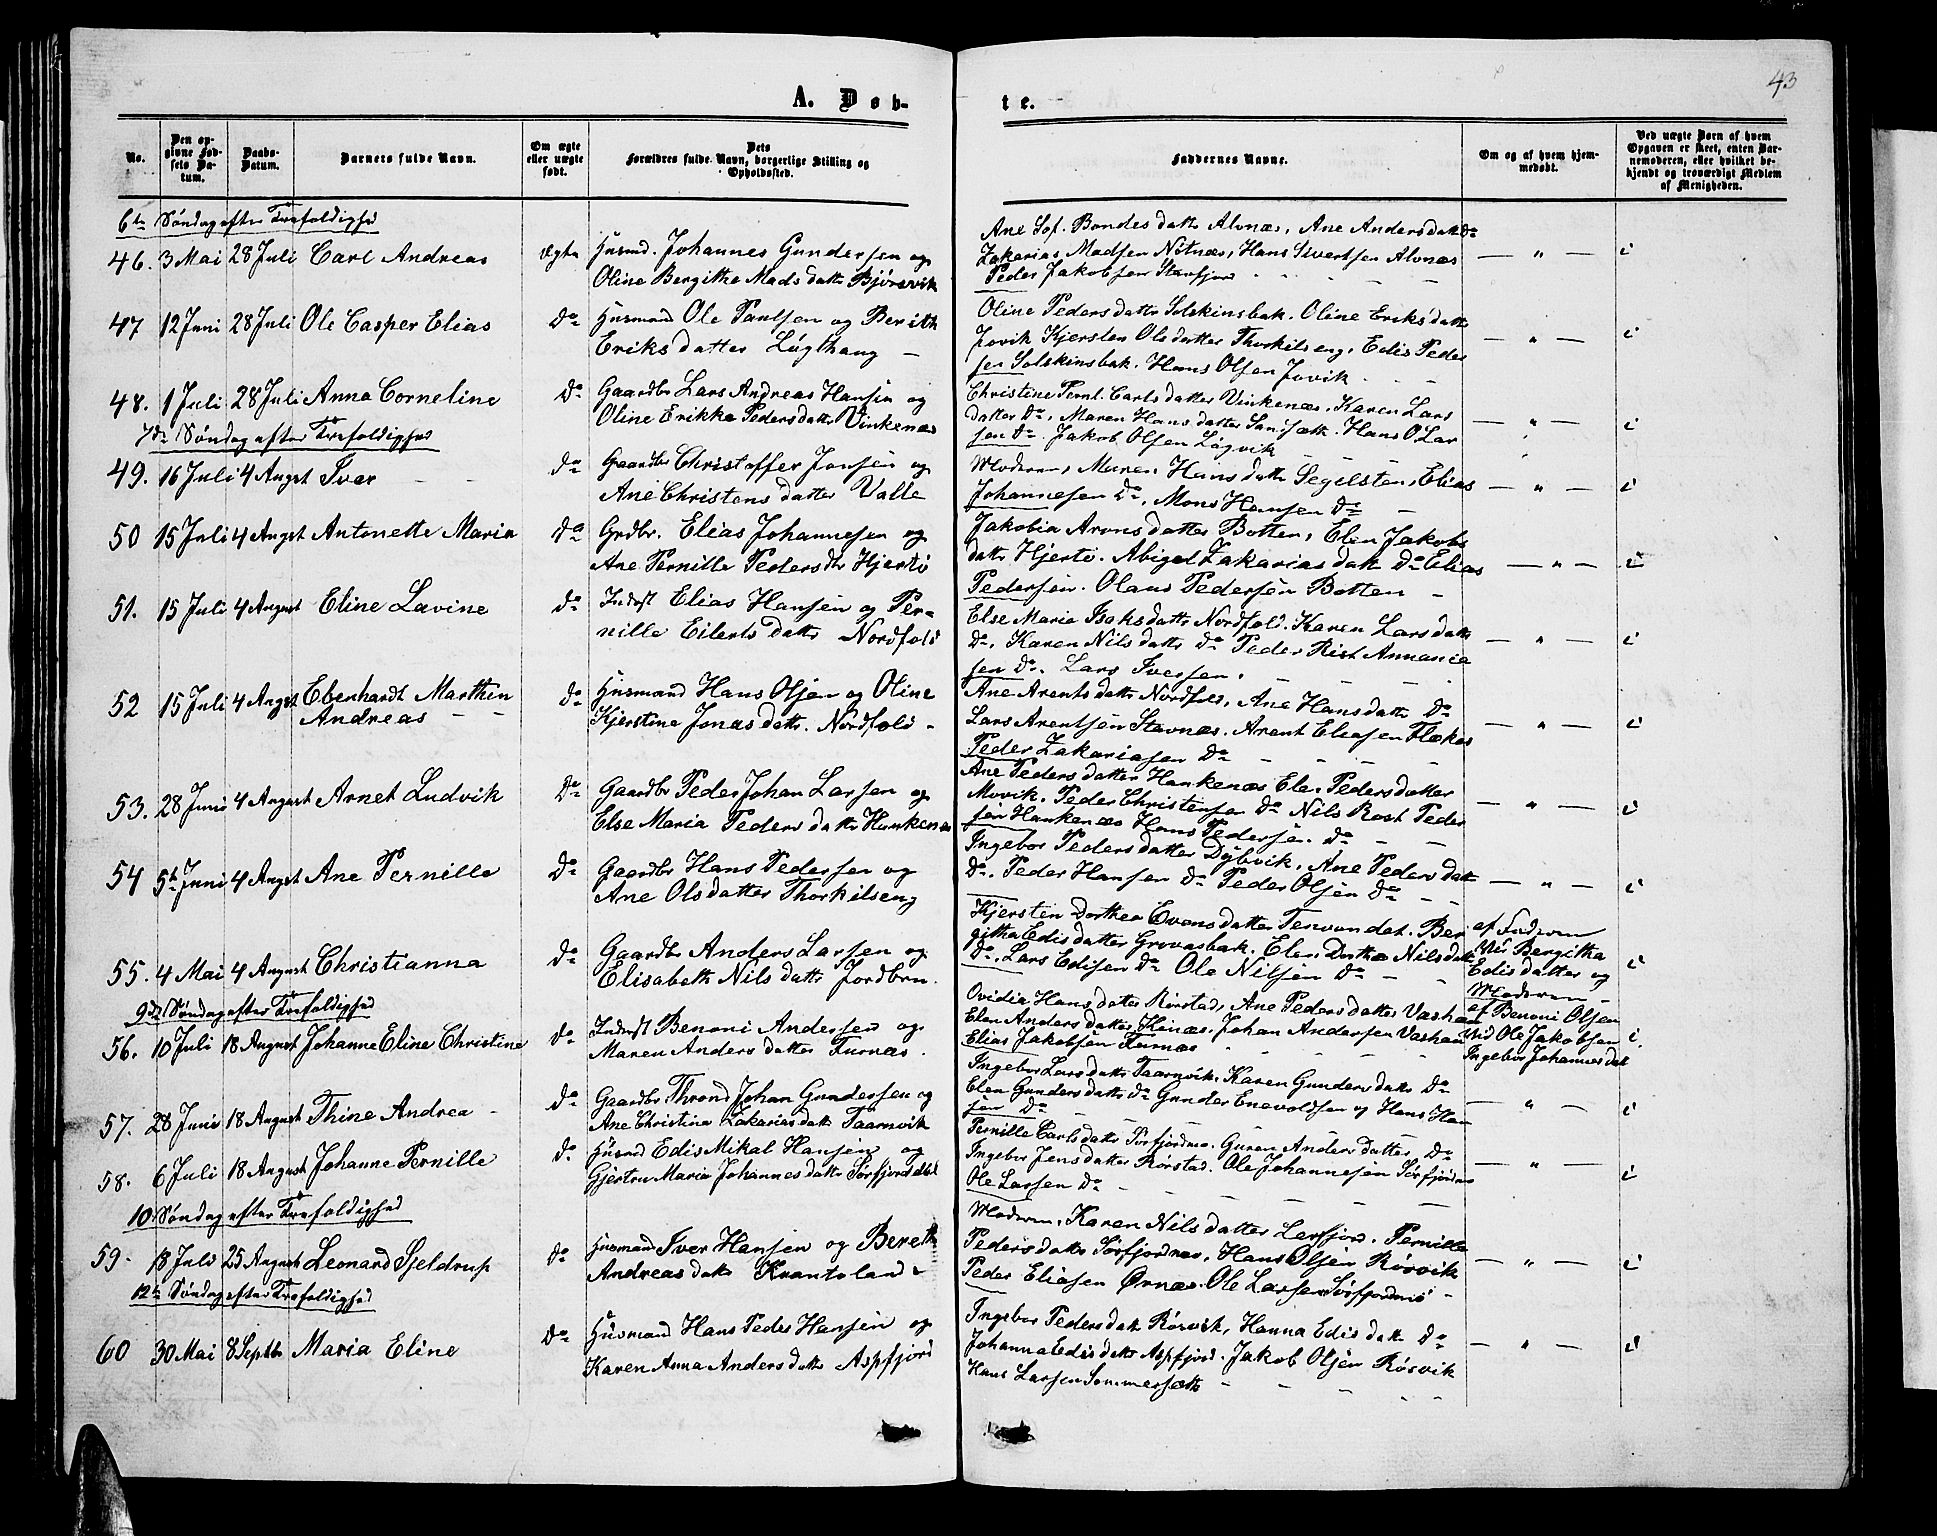 43
A. Døb-
te.
No.
Den opgivne Fødsels Datum.
Daabs-Datum.
Barnets fulde Navn.
Om ægte eller uægte født.
Dets Forældres fulde Navn, borgerlige Stilling og Opholdssted.
Faddernes Navne.
Om og af hvem hjemmedøbt.
Ved uægte Børn af hvem Opgaven er skeet, enten Barnemoderen, eller hvilket bekjendt og troværdigt Medlem af Menigheden.
6te Søndag efter Trefoldighed
46. 3 Mai 28 Juli Carl Andreas ægte Husmd. Johannes Gundersen og
Oline Bergitte Mads datter Bjørsvik
Ane Sof. Bondes datter Alvnæs, Ane Andersdatter Do
Zakarias Madsen Nötnæs, Hans Sivertsen Alvnæs
Peder Jakobsen
47 12 Juni 28 Juli Ole Casper Elias Do Husmand Ole Paulsen og Berith
Eriks datter Løgthaug
Oline Peders datter Solskinsbak. Oline Eriks datter
Jovik Kjersten Ols datter Thorkilseng, Edis Peder
sen Solskinsbak. Hans Olsen Jovik
48. 1 Juli 28 Juli Anna Corneline Do Gaardbr Lars Andreas Hansen og
Oline Erikka Peders datter Vinkenæs
Christine Pernl. Carls datter Vinkenæs. Karen Lars
datter Do, Maren Hans datter Sandsætt. Hans O Lar
sen Do. Jakob Olsen Løgvik
7de Søndag efter Trefoldighed
49. 16 Juli 4 Augst Iver Do Gaardbr Christoffer Jonsen og
Ane Christens datter Valle
Moderen, Maren Hans datter Segelsten, Elias
Johannesen Do, Mons Hansen Do
50 15 Juli 4 Augst Antonette Maria Do Grdbr. Elias Johannesen og
Ane Pernille Pedersdtr Hjertø
Jakobia Arons datter Botten, Elen Jakobs
datter Hjertø. Abigel Zakarias datter Do Elias
Pedersen. Olaus Pedersen Botten
51. 15 Juli 4 August Eline Lavine Do Inderst Elias Hansen og Per-
nille Eilerts datter Nordfold
Else Maria Isaksdatter Nordfold. Karen Lars datter
Do, Karen Nils datter Do Peder Rist Annania
sen Do. Lars Iversen.
52 15 Juli 4 Augst Ebenhardt Marthin
Andreas Do Husmand Hans Olsen og Oline
Kjerstine Jonas datter. Nordfold
Ane Arents datter Nordfold, Ane Hans datter Do
Lars Arentsen Stavnæs. Arent Eliasen Flækes
Peder Zakariasen Do
53. 28 Juni 4 August Arnet Ludvik Do Gaardbr Peder Johan Larsen og
Else Maria Peders datter Hankenæs
Ane Peders datter Hankenæs Elen Peders datter
Movik. Peder Christensen Do Nils Rost Peder
sen Hankenæs Hans Pedersen. Do
54 5te Juni 4 Augst Ane Pernille Do Gaardbr Hans Pedersen og
Ane Olsdatter Thorkilseng
Ingebor Peders datter Dybvik, Ane Peders datter
Do, Peder Hansen Do Peder Olsen Do
55. 4 Mai 4 August Christianna Do Gaardbr Anders Larsen og
Elisabeth Nils datter Jordbru
Kjersten Dorthea Evens datter Tenvandet. Ber
githa Edis datter Grovasbak. Elen Dorthea Nils datter
Do, Lars Edisen Do Ole Nilsen Do
af Faderen
Vis Bergitha
Edis datter og
Moderen
9de Søndag efter Trefoldighed
56. 10 Juli 18 August Johanne Eline Christine Do Inderst Benoni Andersen og
Maren Anders datter Furnæs
Ovidia Hans datter Rørstad, Ane Peders datter Vashau
Elen Anders datter Kinæs. Johan Andersen Vashau
Elias Jakobsen Furnæs
af Benoni Olsen
Vid Ole Jakobsen
Ingebor Johannes datt
57. 28 Juni 18 August Thine Andrea Do Gaardbr Thrond Johan Gundersen og
Ane Christina Zakarias datt Taarnvik
Ingebor Lars datter Taarnvik. Karen Gunders datter Do
Elen Gunders datter Do Gunder Enevoldsen og Hans Han
sen Do
58. 6 Juli 18 August Johanne Pernille Do Husmd Edis Mikal Hansen og
Gjertru Maria Johannes datter
Pernille Carls datter Sørfjordmo. Guren Anders datter Do
Ingebor Jens datter Rørstad. Ole Johannesen Sørfjordmo
Ole Larsen Do
10 Søndag efter Trefoldighed
59. 18 Juli 25 August Leonard Sjeldrup Do Husmand Iver Hansen og Bereth
Andreas datter Krantoland
Moderen, Karen Nils datter Lersfjord. Pernille
Peders datter Sørfjordmo, Hans Olsen Rösvik
Peder Eliasen Ørnæs. Ole Larsen Sörfjordmo
12te Søndag efter Trefoldighed
60 30 Mai 8 Septbr Maria Eline Do Husmand Hans Peder Hansen og
Karen Anna Anders datter Aspfjord
Ingebor Peders datt Rösvik, Hanna Edis datt Do
Johanna Edis datter Aspfjord. Jakob Olsen Rösvik
Hans Larsen Sommersætt